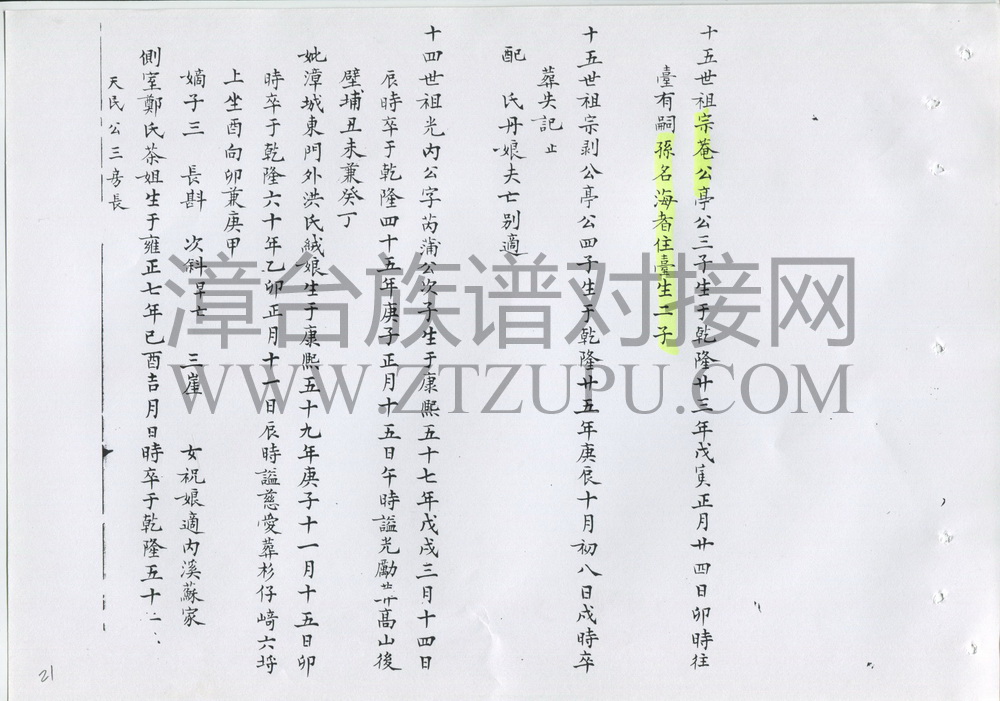 十五世祖宗菴公亭公三子生于乾隆廿三年戊寅正月廿四日卯時往
臺有嗣孫名海者住臺生二子
十五世祖宗剥公亭公四子生于乾隆廿五年庚辰十月初八日戌時卒
葬失記止
配 氏丹娘夫亡别適
十四世祖光内公字芮蒲公次子生于康熙五十七年戊戌三月十四日
辰時卒于乾隆四十五年庚子正月十五日午時謚光勵葬高山後
壁埔丑未兼癸丁
妣漳城東門外洪氏絨娘生于康熙五十九年庚子十一月十五日卯
時卒于乾隆六十年乙卯正月十一日辰時謚慈愛葬杉仔崎六埒
上坐酉向卯兼庚甲
嫡子三 長斟 次斜早亡 三崖 女祝娘適内溪蘇家
側室鄭氏茶姐生于雍正七年己酉吉月日時卒于乾隆五十二
天民公三房長
21
漳台族谱对接网
WWW.ZTZUPU.COM